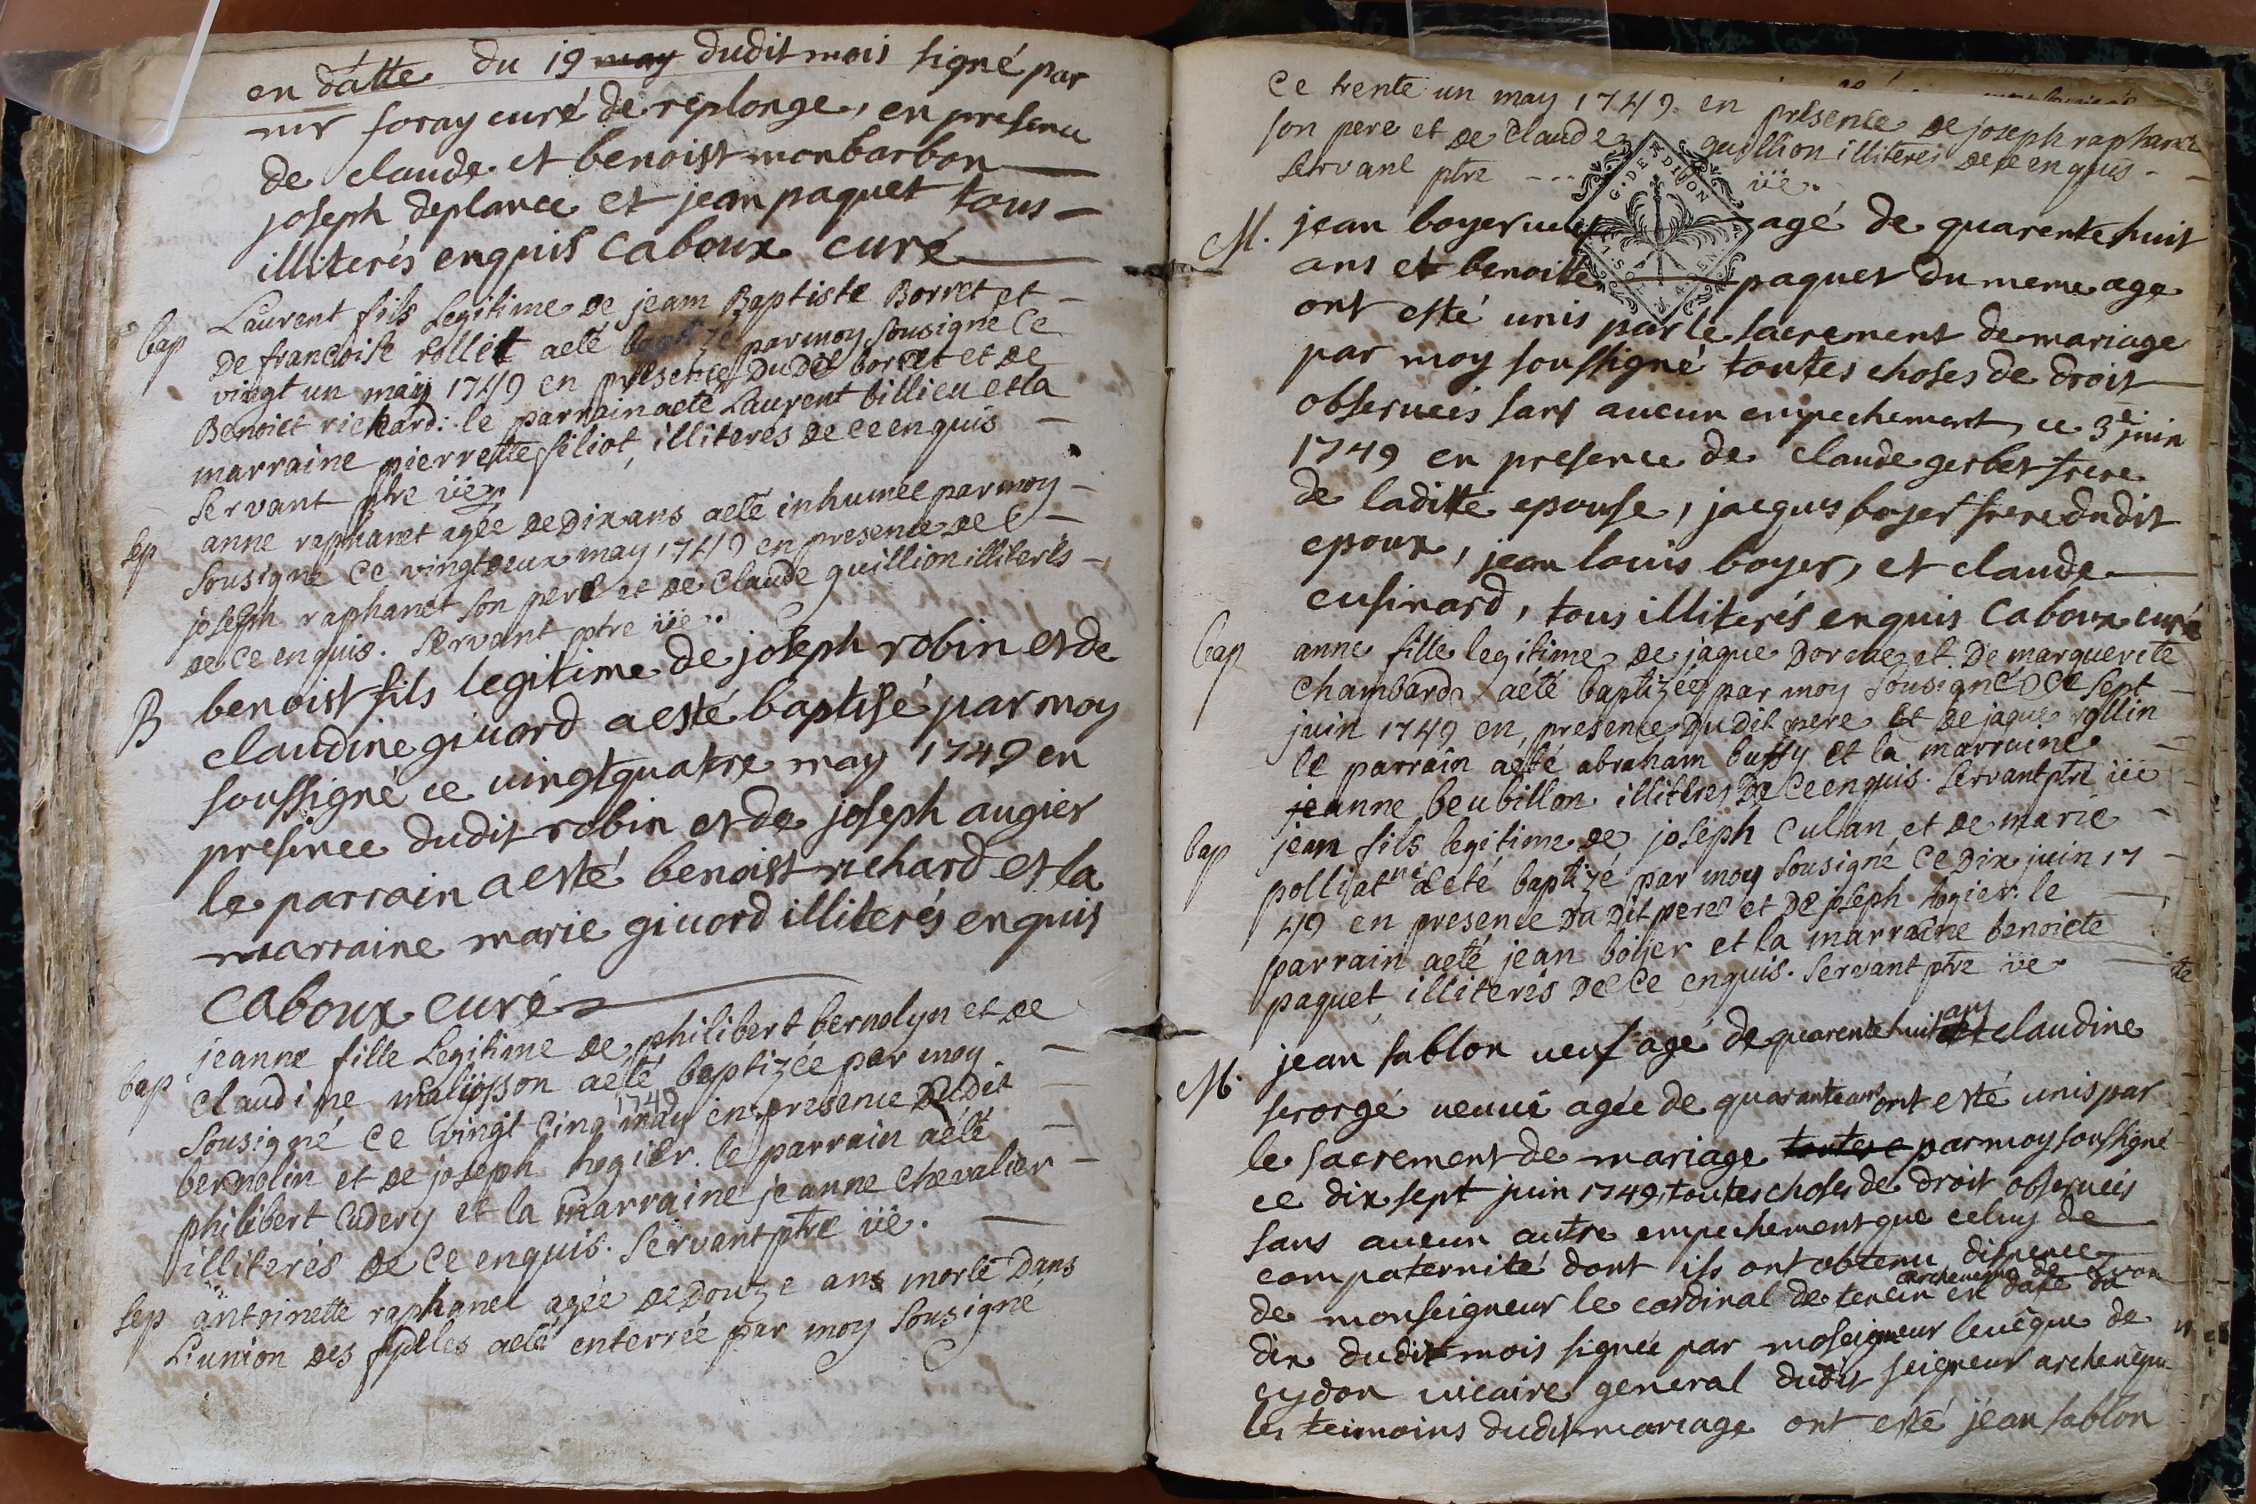 en datte du 19 may dudit mois signé par
mr foray curé de replonge, en presence
de claude et benoist monbarbon
joseph deplance et jean paquet tous
illiterés enquis caboux curé
bap Laurent fils Legitime de jeam Baptiste Borret et
De francoise rollet aeté baptizé par moy Sousigne Ce
vingt un maÿ 1749 en presence Dudit borret et De
Benoict richard: le parrain aeté Laurent billieu et la
marraine pierrette filiot, illiteres de ce enquis
Servant ptre viē
sep anne raphanet agée de Dix ans aeté inhumée par moy
Sousigne Ce vingt deux may 1749 en presence de
joseph raphanet son pere et de Claude guillion illiterés
de Ce enquis. Servant ptre viē.
B benoist fils legitime de joseph robin et de
claudine givord a esté baptisé par moy
soussigné ce vingtquatre may 1749 en
presence dudit robin et de joseph augier
le parrain a esté benoist richard et la
marraine marie givord illiterés enquis
caboux curé
bap jeanne fille Legitime de philibert bernolyn et de
Claudine aeté baptizée par moy
1749
Sousigné Ce vingt Cinq may en presence Dudit
bernolin et de joseph hogier. le parrain aété
philibert Cudery et la marraine jeanne Chevalier
illiterés de Ce enquis. Servant ptre viē.
Sep antoinette raphanel agée de Douze ans morte Dans
L'union des fidelles aeté enterrée par moy Sousigné
Ce trente un may 1749. en presence de joseph raphanel
son pere et de Claude guillion illiteres de ce enquis
Servant ptre viē.
G. DE DIJON
M. jean boyer veuf agé de quarente huit
ans et benoitte paquet du meme age
ont esté unis par le sacrement de mariage
par moy soussigné toutes choses de droit
observeés sans aucun empechement, ce 3e juin
1749 en presence de claude gerbet frere
de laditte epouse, jacques boyer frere dudit
epoux, jean louis boyer, et claude
cusinard, tous illiterés enquis caboux curé
bap anne fille legitime de jaque Dorme et De marguerite
Chambard aété baptizée par moy Sousigné Ce Sept
juin 1749 en presence Du dit pere et de jaque rollin
le parrain aeté abraham buffy et la marraine
jeanne beubillon illiteres De Ce enquis. Servant ptre viē
bap jean fils legitime de joseph Culan et de marie
polliat aeté baptizé par moy Sousigné Ce Dix juin 17
49 en presence Du Dit pere et De joseph hogier. le
parrain aeté jean böyer et la marraine benoicte
paquet illiterés De Ce enquis. Servant ptre viē
ans
M. jean sablon veuf agé de quarente huit et claudine
ferorgé veuve agée de quarante ans ont esté unis par
le sacrement de mariage toutes c par moy soussigné
ce dix sept juin 1749, toutes choses de droit observeés
sans aucun autre empechement que celuy de
compaternité dont ils ont obtenu dispence
archeveque de Lyon
de monseigneur le cardinal de tencin en date du
dix dudit mois signée par moseigneur leveque de
cydon vicaire general dudit seigneur archeveque
les teimoins dudit mariage ont esté jean sablon